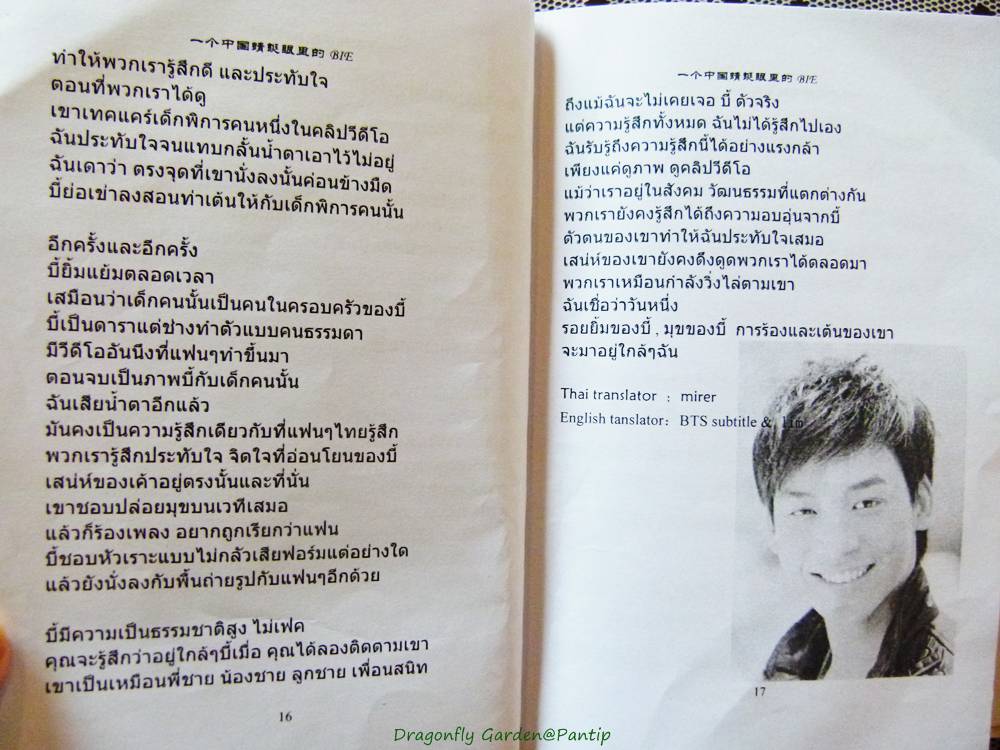 一个中国蜻蜓眼里的 BIE
ทำให้พวกเรารู้สึกดี และประทับใจ
ตอนที่พวกเราได้ดู
เขาเทคแคร์เด็กพิการคนหนึ่งในคลิปวีดีโอ
ฉันประทับใจจนแทบกลั้นน้ำตาเอาไว้ไม่อยู่
ฉันเดาว่า ตรงจุดที่เขานั่งลงนั้นค่อนข้างมืด
บี้ย่อเข่าลงสอนท่าเต้นให้กับเด็กพิการคนนั้น
อีกครั้งและอีกครั้ง
บี้ยิ้มแย้มตลอดเวลา
เสมือนว่าเด็กคนนั้นเป็นคนในครอบครัวของบี้
บี้เป็นดาราแต่ช่างทำตัวแบบคนธรรมดา
มีวีดีโออันนึงที่แฟนๆทำขึ้นมา
ตอนจบเป็นภาพบี้กับเด็กคนนั้น
ฉันเสียน้ำตาอีกแล้ว
มันคงเป็นความรู้สึกเดียวกับที่แฟนๆไทยรู้สึก
พวกเรารู้สึกประทับใจ จิตใจที่อ่อนโยนของบี้
เสน่ห์ของเค้าอยู่ตรงนั้นและที่นั่น
เขาชอบปล่อยมุขบนเวทีเสมอ
แล้วก็ร้องเพลง อยากถูกเรียกว่าแฟน
บี้ชอบหัวเราะแบบไม่กลัวเสียฟอร์มแต่อย่างใด
แล้วยังนั่งลงกับพื้นถ่ายรูปกับแฟนๆอีกด้วย
บี้มีความเป็นธรรมชาติสูง ไม่เฟค
คุณจะรู้สึกว่าอยู่ใกล้ๆบี้เมื่อ คุณได้ลองติดตามเขา
เขาเป็นเหมือนพี่ชาย น้องชาย ลูกชาย เพื่อนสนิท
16
一个中国蜻蜓眼里的 BIE
ถึงแม้ฉันจะไม่เคยเจอ บี้ ตัวจริง
แต่ความรู้สึกทั้งหมด ฉันไม่ได้รู้สึกไปเอง
ฉันรับรู้ถึงความรู้สึกนี้ได้อย่างแรงกล้า
เพียงแค่ดูภาพ ดูคลิปวีดีโอ
แม้ว่าเราอยู่ในสังคม วัฒนธรรมที่แตกต่างกัน
พวกเรายังคงรู้สึกได้ถึงความอบอุ่นจากบี้
ตัวตนของเขาทำให้ฉันประทับใจเสมอ
เสน่ห์ของเขายังคงดึงดูดพวกเราได้ตลอดมา
พวกเราเหมือนกำลังวิ่งไล่ตามเขา
ฉันเชื่อว่าวันหนึ่ง
รอยยิ้มของบี้ , มุขของบี้ การร้องและเต้นของเขา
จะมาอยู่ใกล้ๆฉัน
Thai translator : mirer
English tanslator: BTS subtitle & lim
17
Dragonfly Garden@Pantip